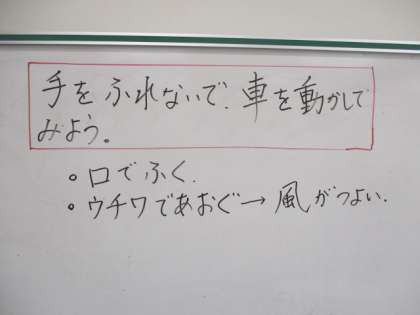 手をふれないで、車を動かして
みよう。
・口でふく、
・ウチワであおぐ→風がつよい、